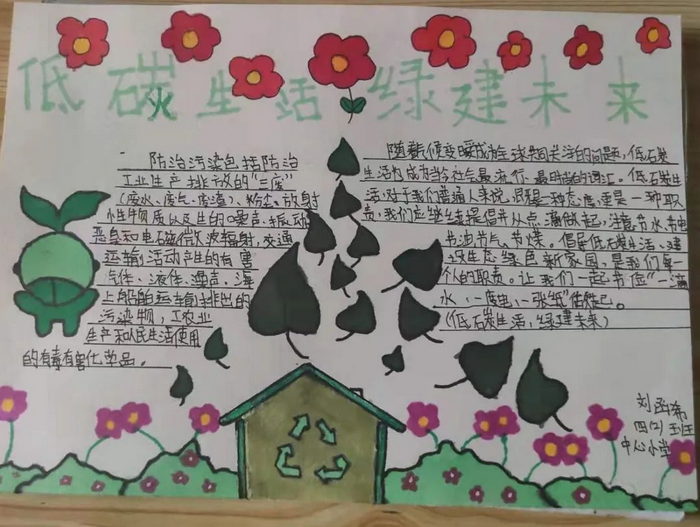 低碳生活 绿建未来
防治污染包括防治
工业生产排放的“三废”
(废水、废气、废渣)、粉尘、放射
性物质以及生的噪声、振动、
恶臭和电磁微波辐射,交通
运输活动产生的有害
气体、液体、噪声、海
上船舶运输排出的
污染物,工农业
生产和人民生活使用
的有毒有害化学品。
随着气候变暖成为全球共同关注的问题,低石炭
生活也成为当今社会最流行、最时尚的词汇。低石炭生
活,对于我们普通人来说,既是一种态度,更是一种职
责,我们应继续提倡并从点滴做起,注意节水、节电
节油节气、节煤。倡导低石炭生活、建
设生态绿色新家园,是我们每一
个人的职责。让我们一起节位“一滴
水,一度电,一张纸”佳胜己。
(低石炭生活,绿建未来)
刘函希
四(2)班
中心小学